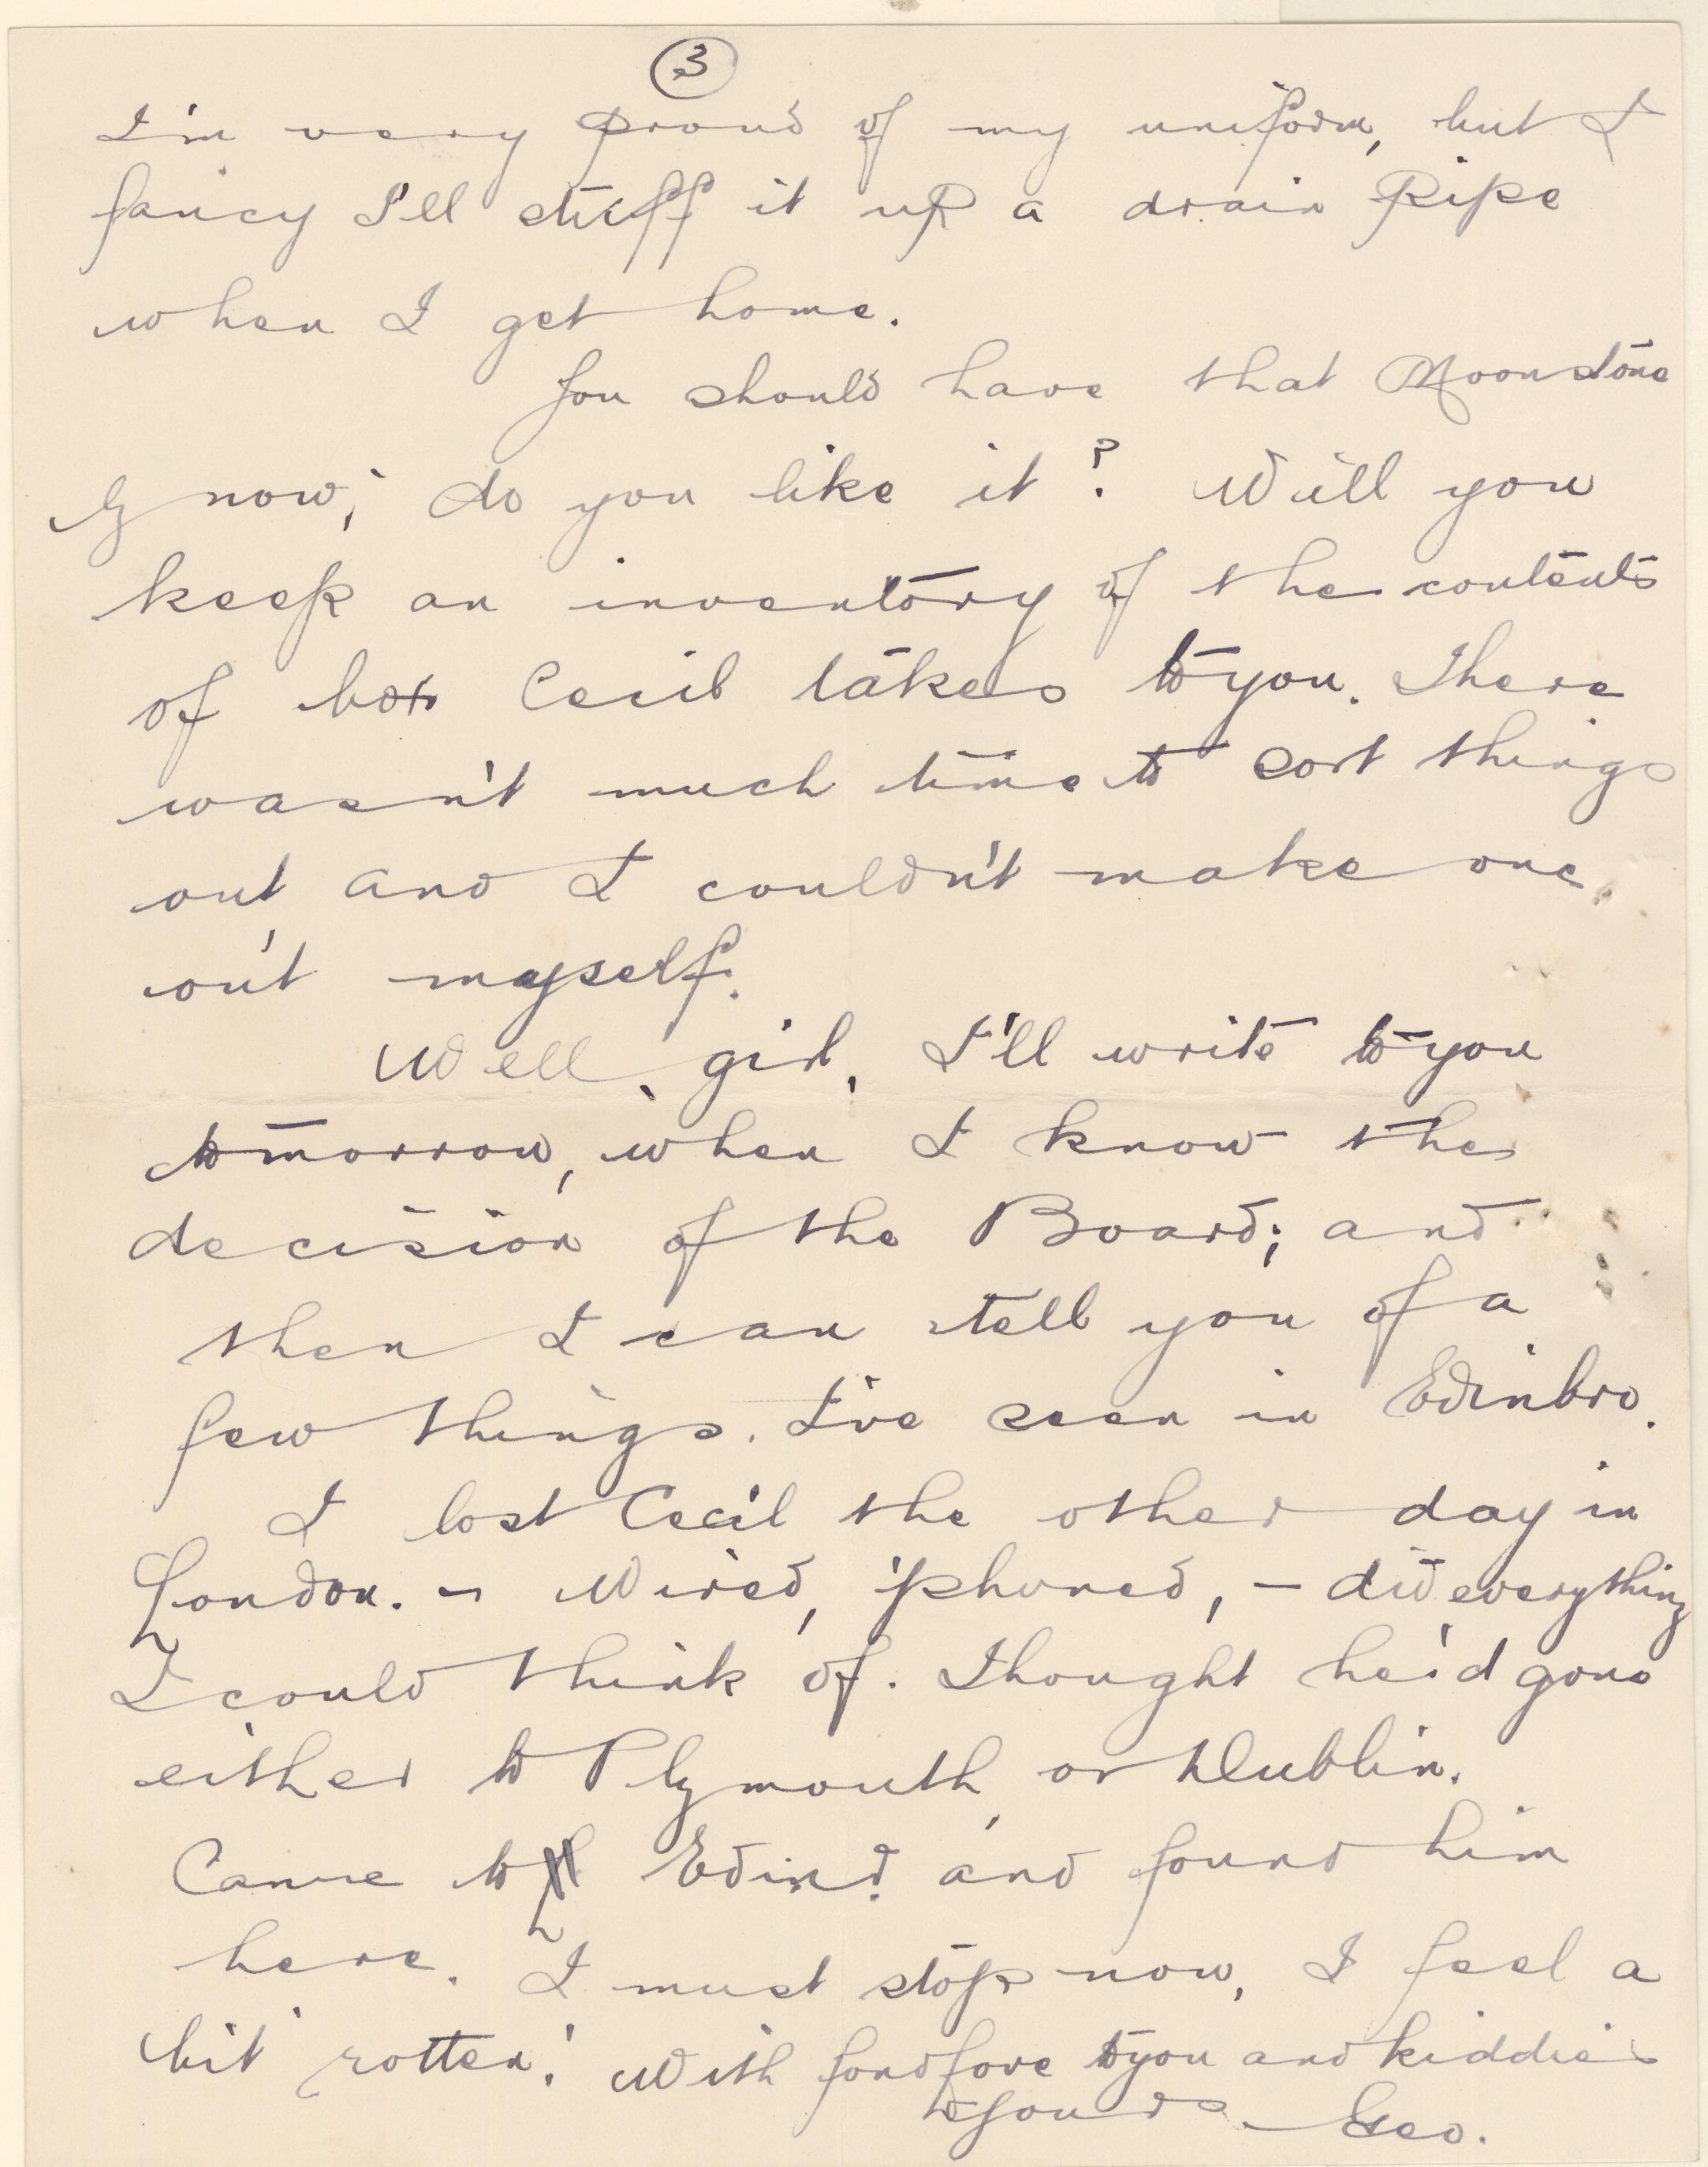 3
I'm very proud of my uniform, but I
fancy I'll stuff it up a drain Pipe
when I get home.
You should have that Moonstone
by now; do you like it? Will you
keep an inventory of the contents
of box Cecil takes to you. There
wasn't much time to sort things
out, and I couldn't make one
out myself.
Well, girl, I'll write to you
tomorrow, when I know the
decision of the Board; and
then I can tell you of a
few things I've seen in Edinbro.
I lost Cecil the other day in
London. - Wired, 'phoned, - did everything
I could think of. Thought he'd gone
either to Plymouth, or Dublin.
Came to Edinb. and found him
here. I must stop now, I feel a
bit 'rotten'. With fond love to you and kiddies
Yours Geo.